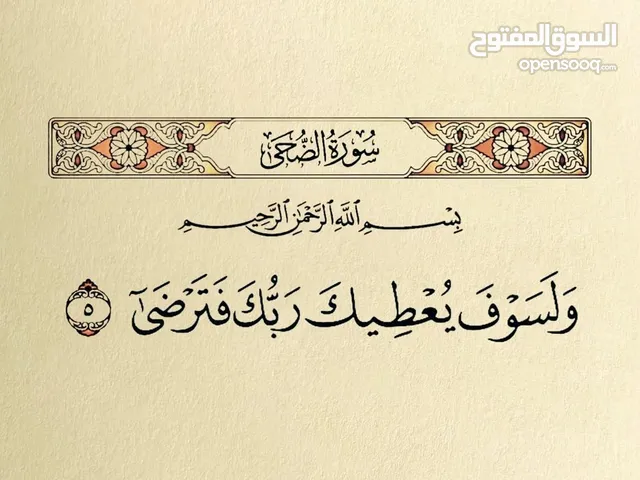 السوق المفتوح
opensooq.com
سُورَةُ الضُّحَى
بِسْمِ ٱللَّهِ ٱلرَّحْمَٰنِ ٱلرَّحِيمِ
وَلَسَوْفَ يُعْطِيكَ رَبُّكَ فَتَرْضَىٰٓ ٥